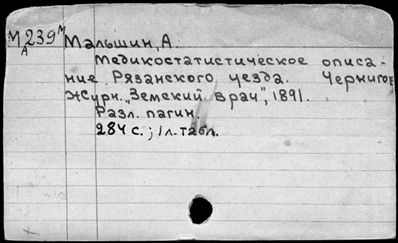 М 239 м Мальшин, А.
А
Медикостатистическое описа-
ние Рязанского уезда. Чернигов
Журн. „Земский врач", 1891.
Разл. пагин.
284 с.; 1 л. табл.